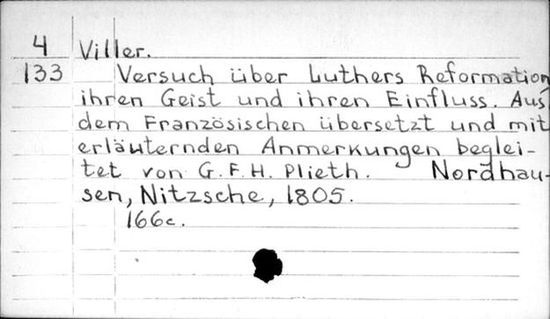 4 Viller.
133 Versuch über Luthers Reformation
ihren Geist und ihren Einfluss. Aus
dem Französischen übersetzt und mit
erläuternden Anmerkungen beglei-
tet von G. F. H. Plieth. Nordhau-
sen, Nitzsche, 1805.
166c.